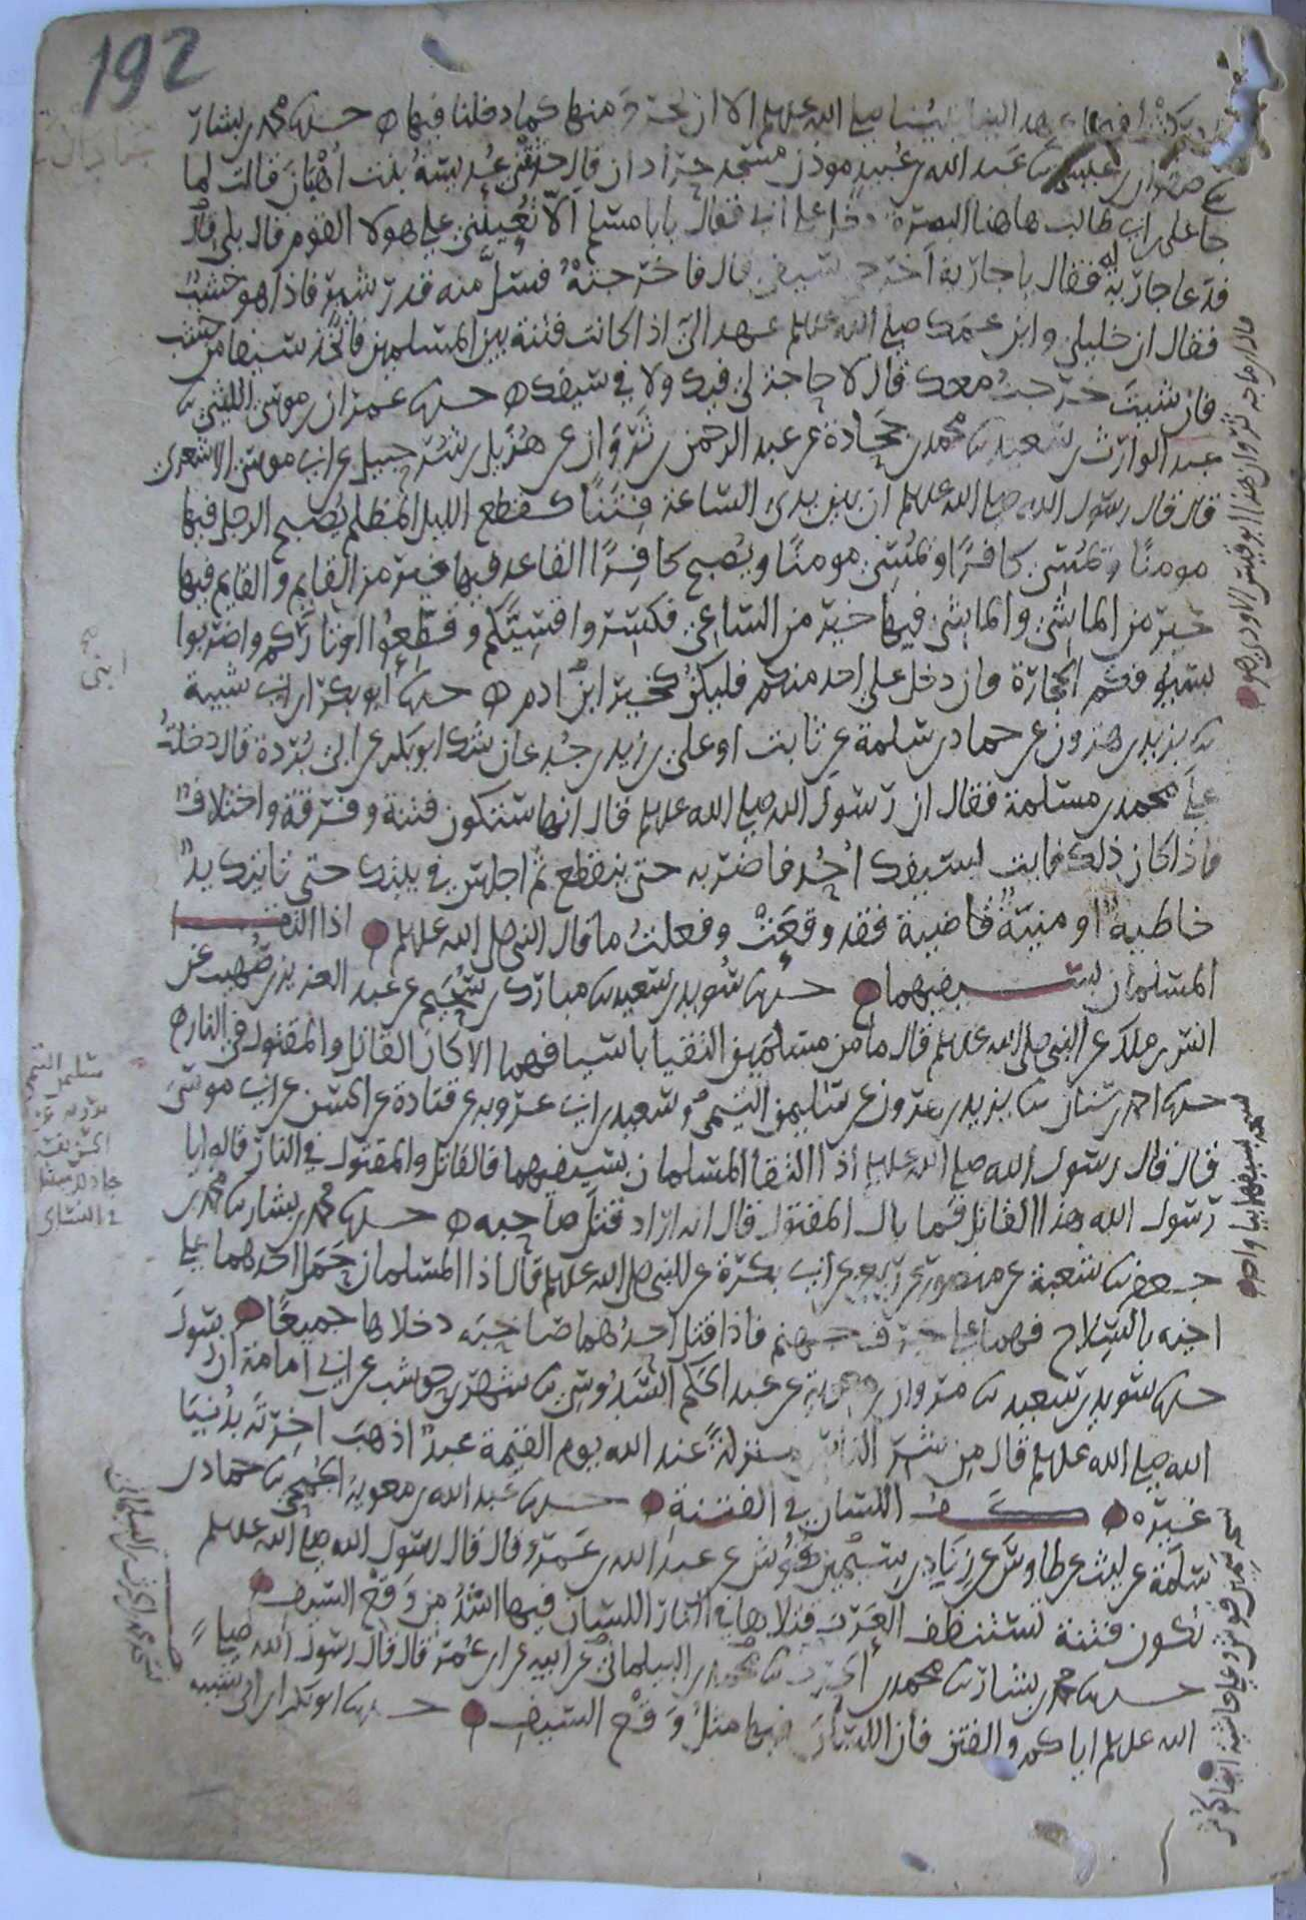 192
عهد الينا نبينا صلى الله عليه الا ان نخرج منها كما دخلنا فيها ه حدثنا محمد بن بشار
ثنا صفوان بن عيسى ثنا عبد الله بن عبيد موذن مسجد جرادان قال حدثتني عديسة بنت أهبان قالت لما
جا علي بن ابي طالب هاهنا البصرة دخل على ابي فقال يابا مسلم ألا تعينني على هولا القوم قال بلى قال
فدعا جارية له فقال يا جارية أخرجي سيفي قال فاخرجته فسل منه قدر شبر فاذا هو خشب
فقال ان خليلي وابن عمك صلى الله عليه عهد الي اذا كانت فتنة بين المسلمين فاتخذ سيفا من خشب
فان شيت خرجت معك قال لا حاجة لي فيك ولا في سيفك ه حدثنا عمران بن موسى الليثي ثنا
عبد الوارث بن سعيد ثنا محمد بن جحادة عن عبد الرحمن بن ثروان عن هزيل بن شرحبيل عن ابي موسى الاشعري
قال قال رسول الله صلى الله عليه ان بين يدي الساعة فتنا كقطع الليل المظلم يصبح الرجل فيها
مومنا ويمسي كافرا ويمسي مومنا ويصبح كافرا القاعد فيها خير من القايم والقايم فيها
خير من الماشي والماشي فيها خير من الساعي فكسروا قسيكم وقطعوا اوتاركم واضربوا
بسيوفكم الحجارة فان دخل على احد منكم فليكن كخير ابني ادم ه حدثنا أبو بكر بن ابي شيبة
ثنا يزيد بن هرون عن حماد بن سلمة عن ثابت او علي بن زيد بن جدعان شك ابو بكر عن ابي بردة قال دخلت
على محمد بن مسلمة فقال ان رسول الله صلى الله عليه قال انها ستكون فتنة وفرقة واختلاف
فاذا كان ذلك فات بسيفك أحدا فاضربه حتى ينقطع ثم اجلس في بيتك حتى تاتيك يد
خاطية او منية قاضية فقد وقعت وفعلت ما قال النبي صلى الله عليه اذا التقا
المسلمان بسيفيهما حدثنا سويد بن سعيد ثنا مبارك بن سحيم عن عبد العزيز بن صهيب عن
انس بن ملك عن النبي صلى الله عليه قال ما من مسلمين التقيا باسيافهما الا كان القاتل والمقتول في النار ه
حدثنا احمد بن سنان ثنا يزيد بن هرون عن سليمن التيمي وسعيد بن ابي عروبة عن قتادة عن الحسن عن ابي موسى
قال قال رسول الله صلى الله عليه اذا التقا المسلمان بسيفيهما فالقاتل والمقتول في النار قالوا يا
رسول الله هذا القاتل فما بال المقتول قال انه اراد قتل صاحبه ه حدثنا محمد بن بشار ثنا محمد بن
جعفر ثنا شعبة عن منصور عن ربعي عن ابي بكرة عن النبي صلى الله عليه قال اذا المسلمان حمل احدهما على
اخيه بالسلاح فهما على جرف جهنم فاذا قتل احدهما صاحبه دخلاها جميعا
حدثنا سويد بن سعيد ثنا مروان بن معوية عن عبد الحكم السدوسي ثنا شهر بن حوشب عن ابي أمامة ان رسول
الله صلى الله عليه قال من شر الناس منزلة عند الله يوم القيمة عبد اذهب اخرته بدنيا
غيره كف اللسان في الفتنة حدثنا عبد الله بن معوية الجمحي ثنا حماد بن
سلمة عن ليث عن طاوس عن زياد سيمين كوش عن عبد الله بن عمرو قال قال رسول الله صلى الله عليه
تكون فتنة تستنظف العرب قتلاها في النار اللسان فيها اشد من وقع السيف
حدثنا محمد بن بشار ثنا محمد بن الحرث ثنا محمد بن البيلماني عن ابيه عن ابن عمر قال قال رسول الله صلى
الله عليه اياكم والفتن فان اللسان فيها مثل وقع السيف حدثنا ابو بكر بن ابي شيبة